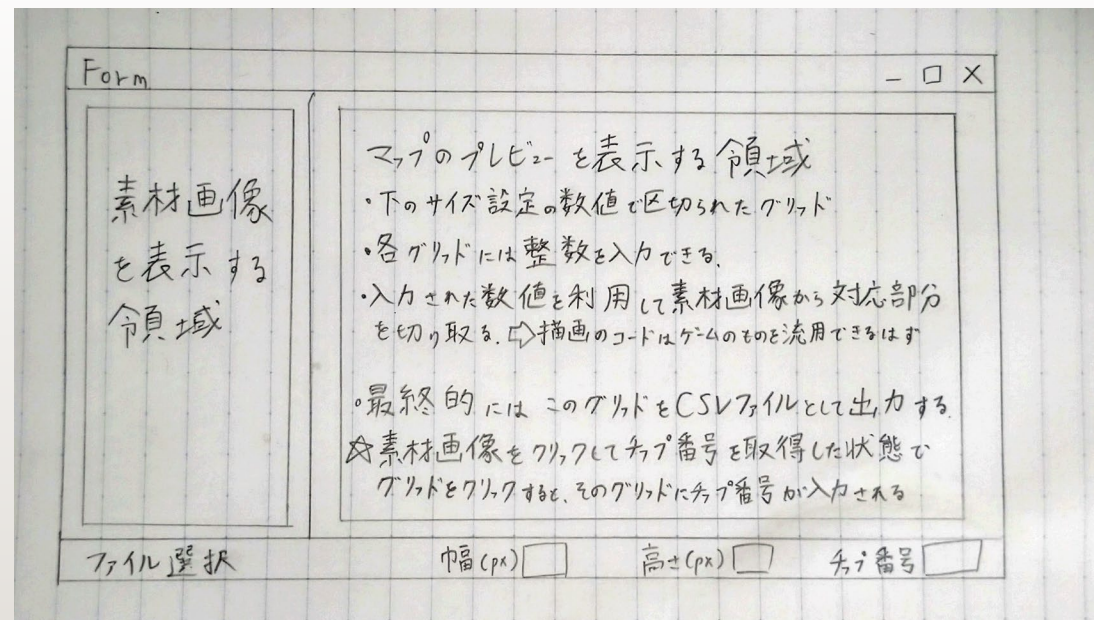 Form
素材画像
を表示する
領域
マップのプレビューを表示する領域
・下のサイズ設定の数値で区切られたグリッド
・各グリッドには整数を入力できる。
・入力された数値を利用して素材画像から対応部分
を切り取る。⇨描画のコードはゲームのものを流用できるはず
・最終的にはこのグリッドをCSVファイルとして出力する。
☆素材画像をクリックしてチップ番号を取得した状態で
グリッドをクリックすると、そのグリッドにチップ番号が入力される
ファイル選択 幅(px) 高さ(px) チップ番号